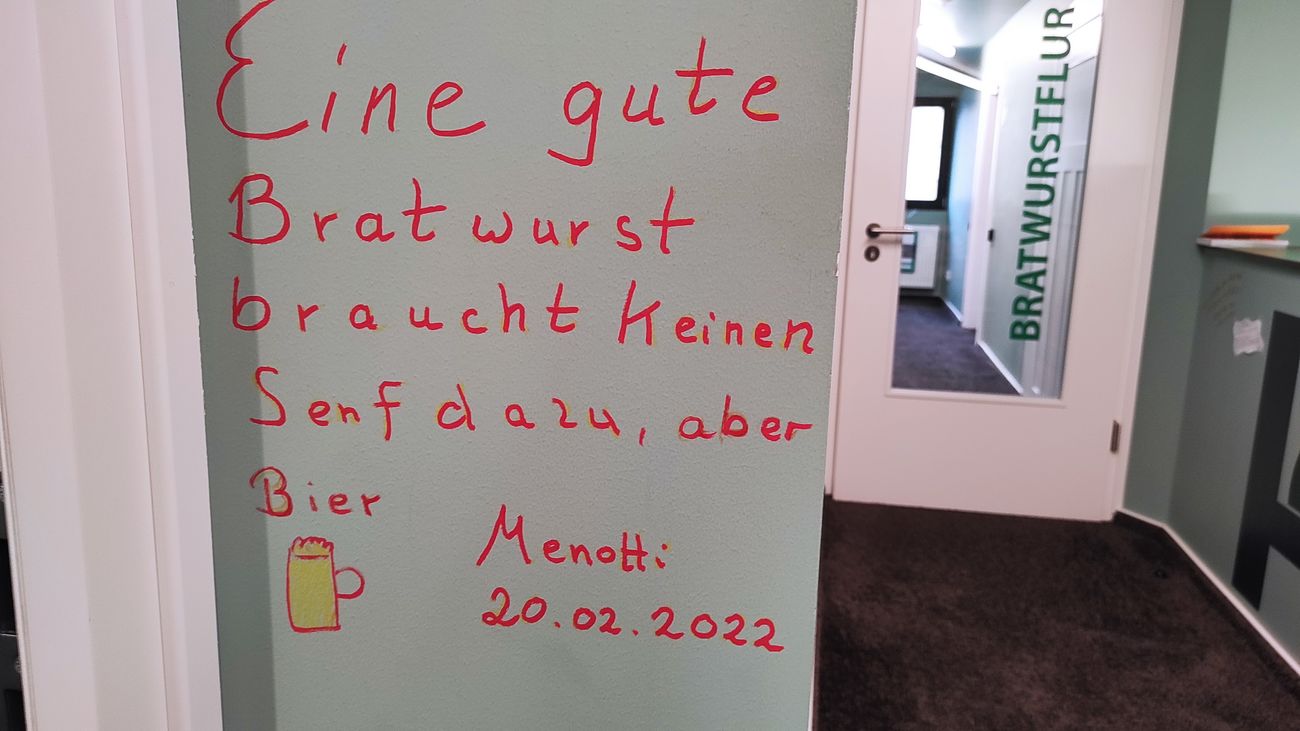 Eine gute
Bratwurst
braucht Keinen
Senf dazu, aber
Bier
Menotti
20.02.2022
BRATWURSTFLUR